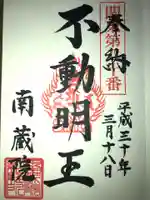 奉納
平成三十年
三月十八日
不動明王
南蔵院